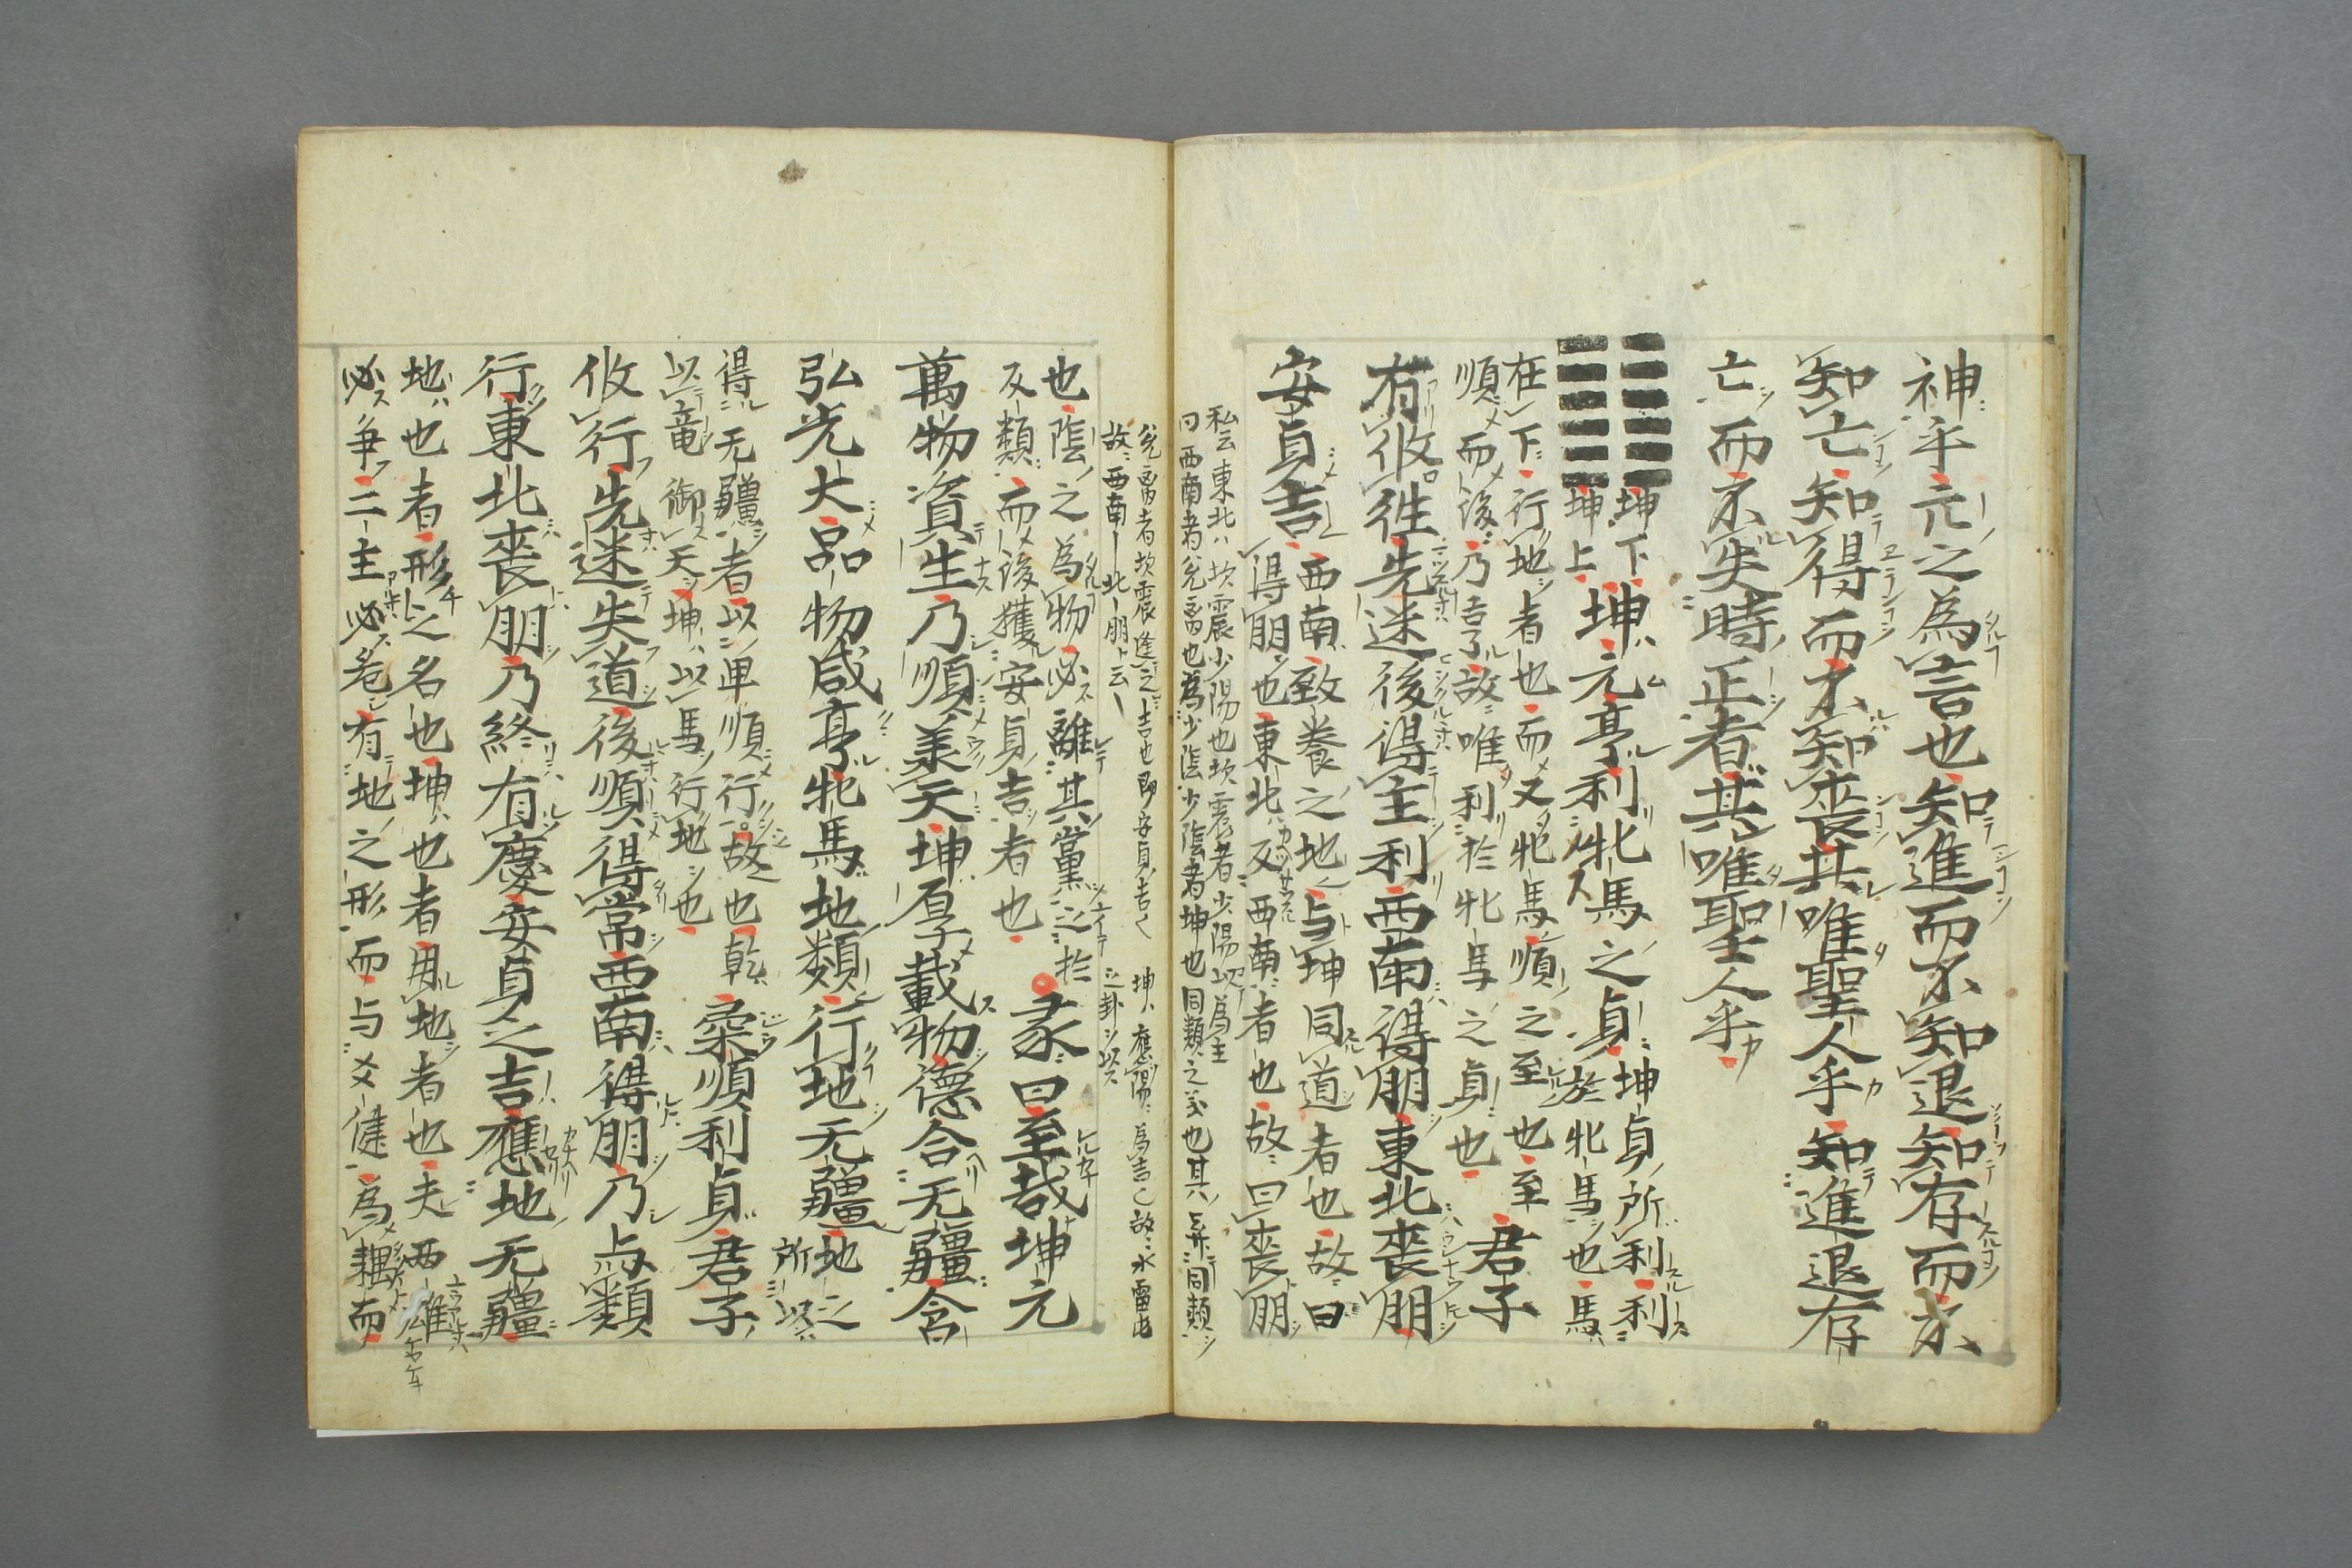 神乎亢之為言也知進而不知退知存而不
知亡知得而不知喪其唯聖人乎知進退存
亡而不失時正者其唯聖人乎
坤下
坤上
坤元亨利牝馬之貞
坤貞所利利
於牝馬也馬
在下行地者也而又牝馬順之至也至
順而後乃吉了故唯利於牝馬之貞也
君子
有攸往先迷後得主利西南得朋東北喪朋
安貞吉
西南致養之地与坤同道者也故曰
得朋也東北反西南者也故曰喪朋
私云東北ハ坎震少陽也坎震者少陽以為主
曰西南者兊离也為少陰少陰者坤也同類之義也其弃同類
兊离者坎震逢之吉也即安貞吉
故西南ー北ー朋ト云ー
坤ハ應陽為吉故水雷屯
之卦以
也陰之為物必離其黨之於
反類而後獲安貞吉者也
彖曰至哉坤元
萬物資生乃順羕天坤厚載物德合无疆含
弘光大品物咸亨牝馬地類行地无疆
地之
所以
得无疆者以卑順行故也乾
以竜御天坤ハ以馬行地也
柔順利貞君子
攸行先迷失道後順得常西南得朋乃与類
行東北喪朋乃終有慶安貞之吉應地无疆
地也者形之名也坤也者用地者也夫兩雄
必争二主必危有地之形而与爻健為耦而